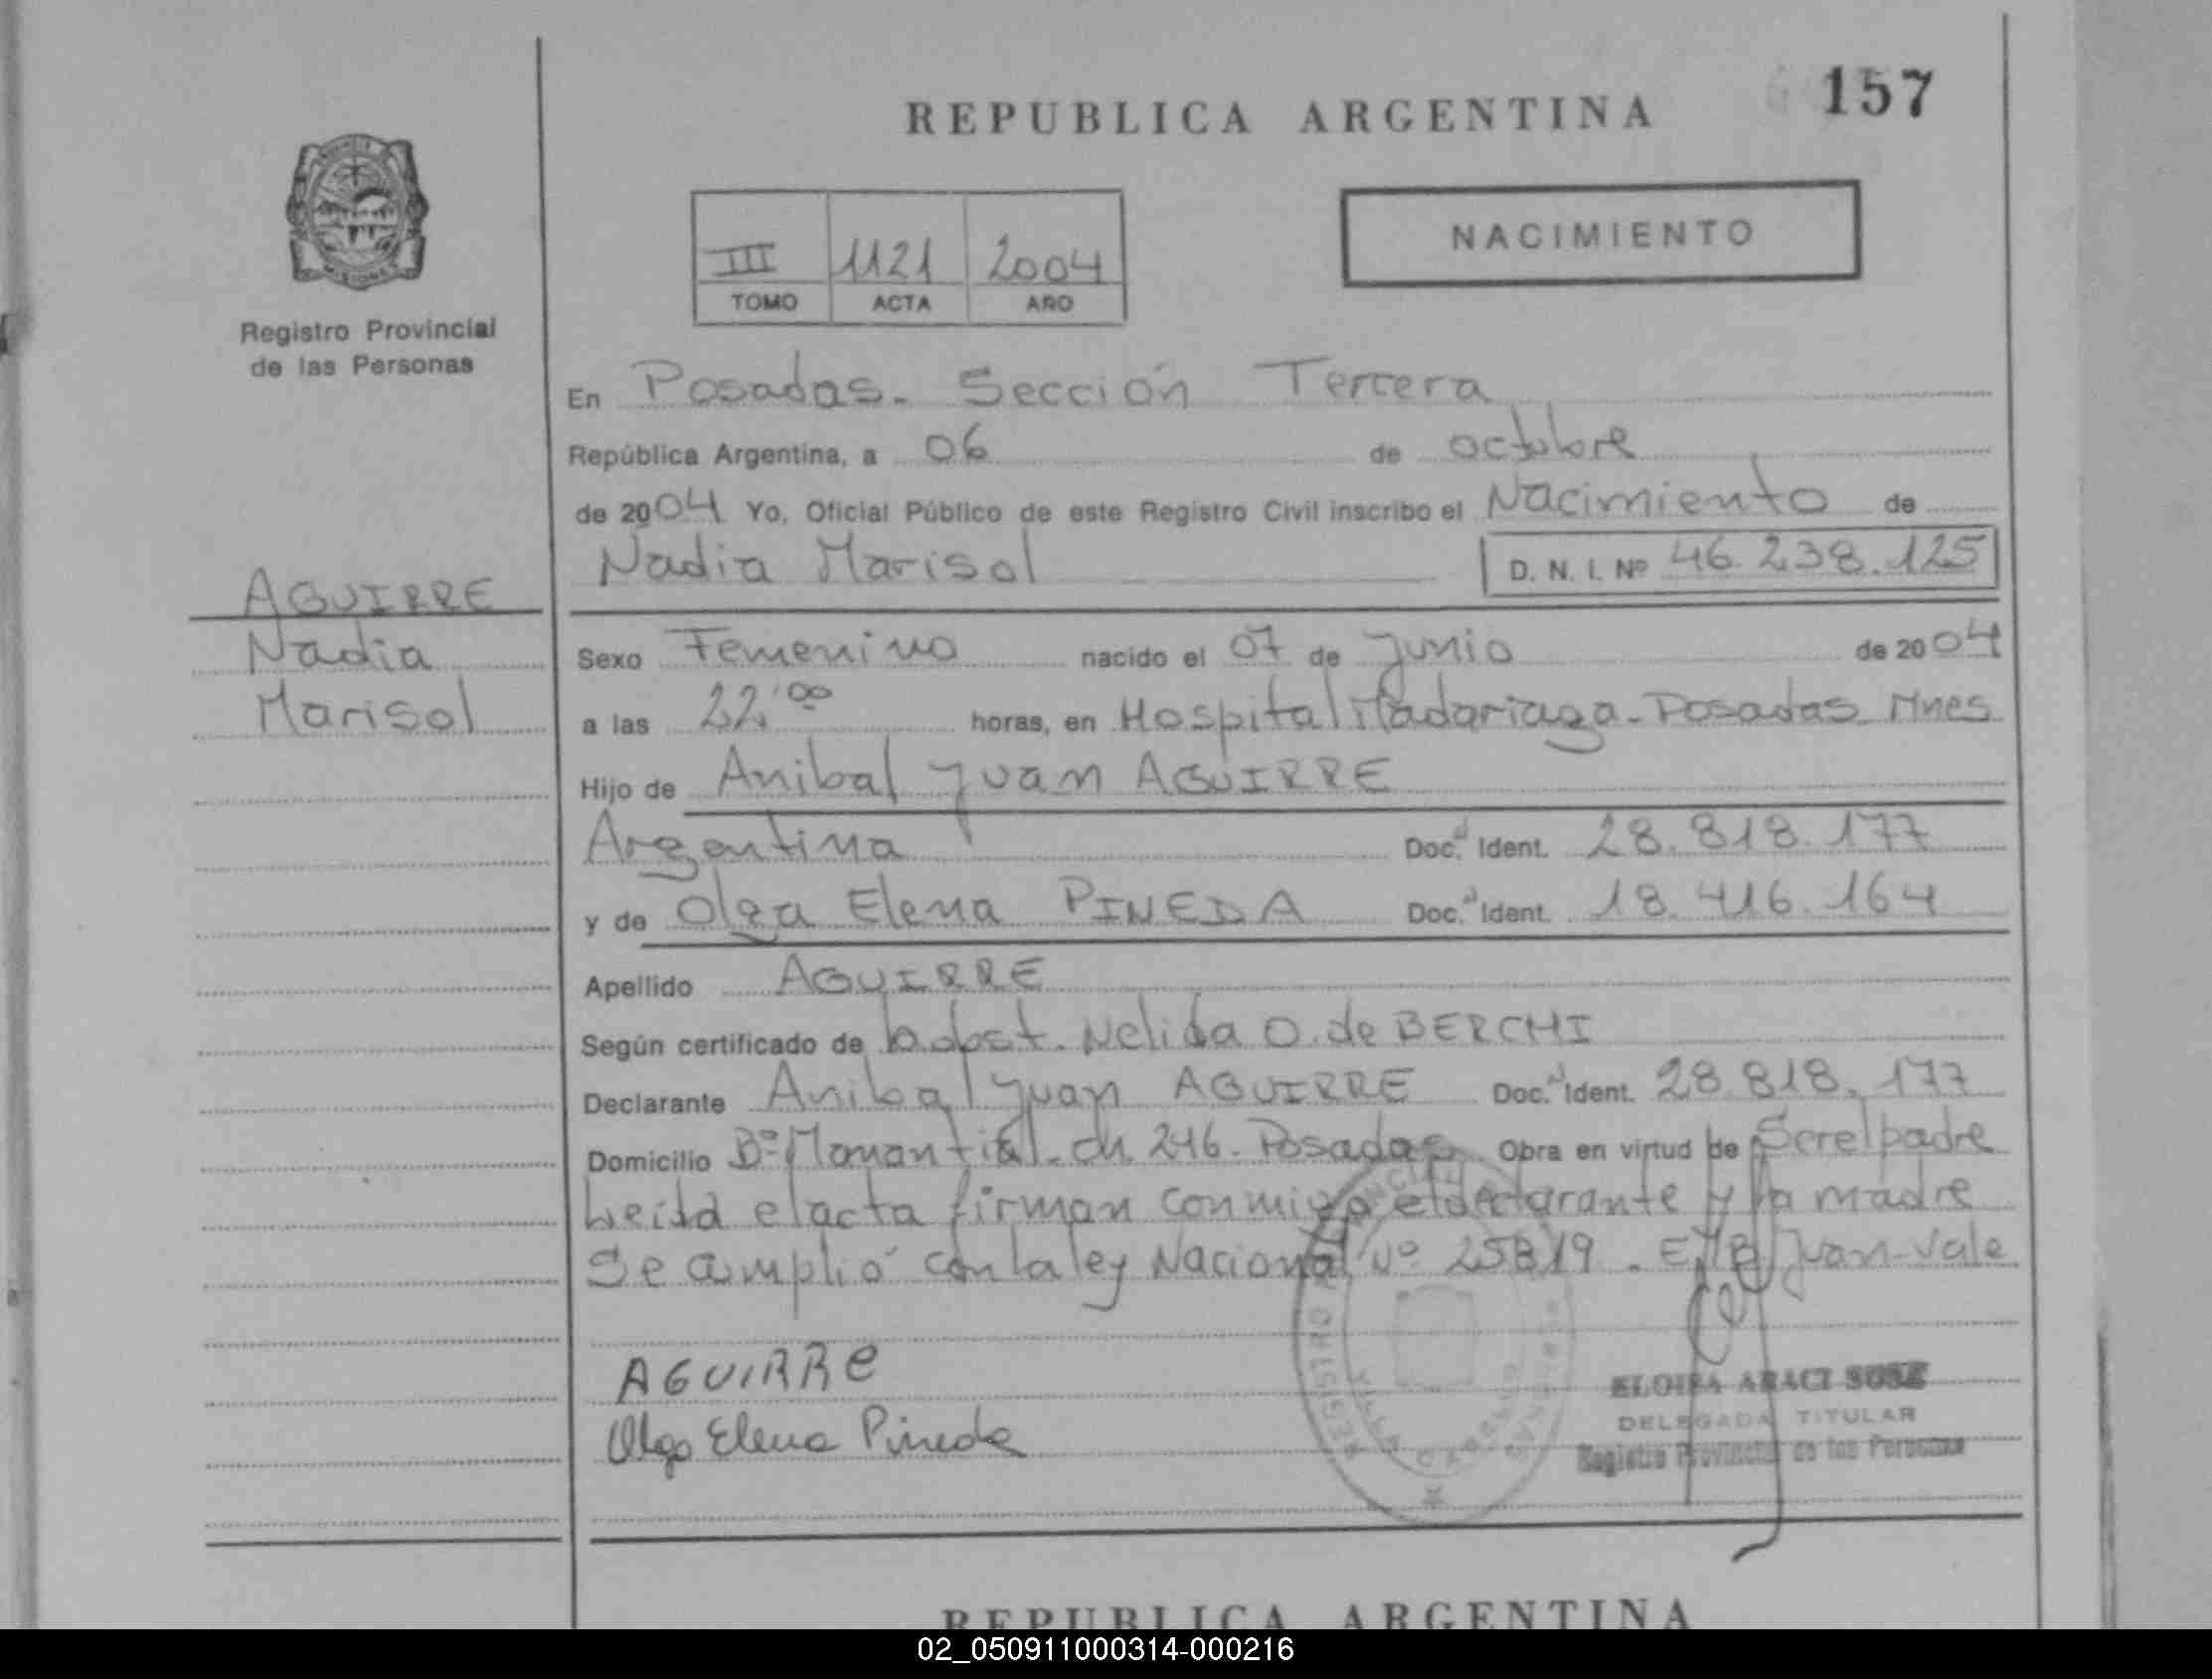 REPUBLICA ARGENTINA
157
III 1121 2004
TOMO ACTA AÑO
NACIMIENTO
MISIONES
Registro Provincial
de las Personas
En Posadas. Sección Tercera
República Argentina, a 06 de octubre
de 2004 Yo, Oficial Público de este Registro Civil inscribo el Nacimiento de
Nadia Marisol D. N. I. Nº 46.238.125
AGUIRRE
Nadia
Marisol
Sexo Femenino nacido el 07 de Junio de 2004
a las 22'00 horas, en Hospital Madariaga - Posadas Mnes
Hijo de Anibal Juan AGUIRRE
Argentina Doc. Ident. 28.818.177
y de Olga Elena PINEDA Doc. Ident. 18.416.164
Apellido AGUIRRE
Según certificado de obst. Nelida O. de BERCHI
Declarante Anibal Juan AGUIRRE Doc. Ident. 28.818.177
Domicilio Bº Manantial - ch. 246 - Posadas Obra en virtud de Ser el padre
Leída el acta firman conmigo el declarante y la madre
Se amplió con la ley Nacional Nº 25819. Juan - Vale
AGUIRRE
Olga Elena Pineda
DELEGADA TITULAR
Registro Provincial de las Personas
REPUBLICA ARGENTINA
02_050911000314-000216